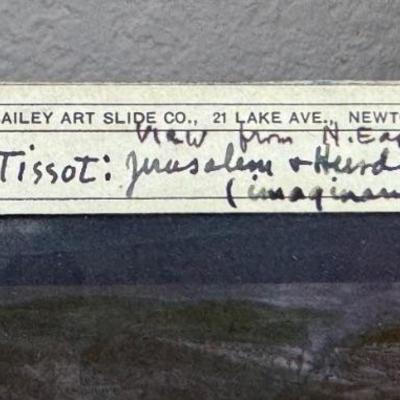 AILEY ART SLIDE CO., 21 LAKE AVE., NEWT
View from N.Eas
Tissot: Jerusalem + Herod
(imaginar